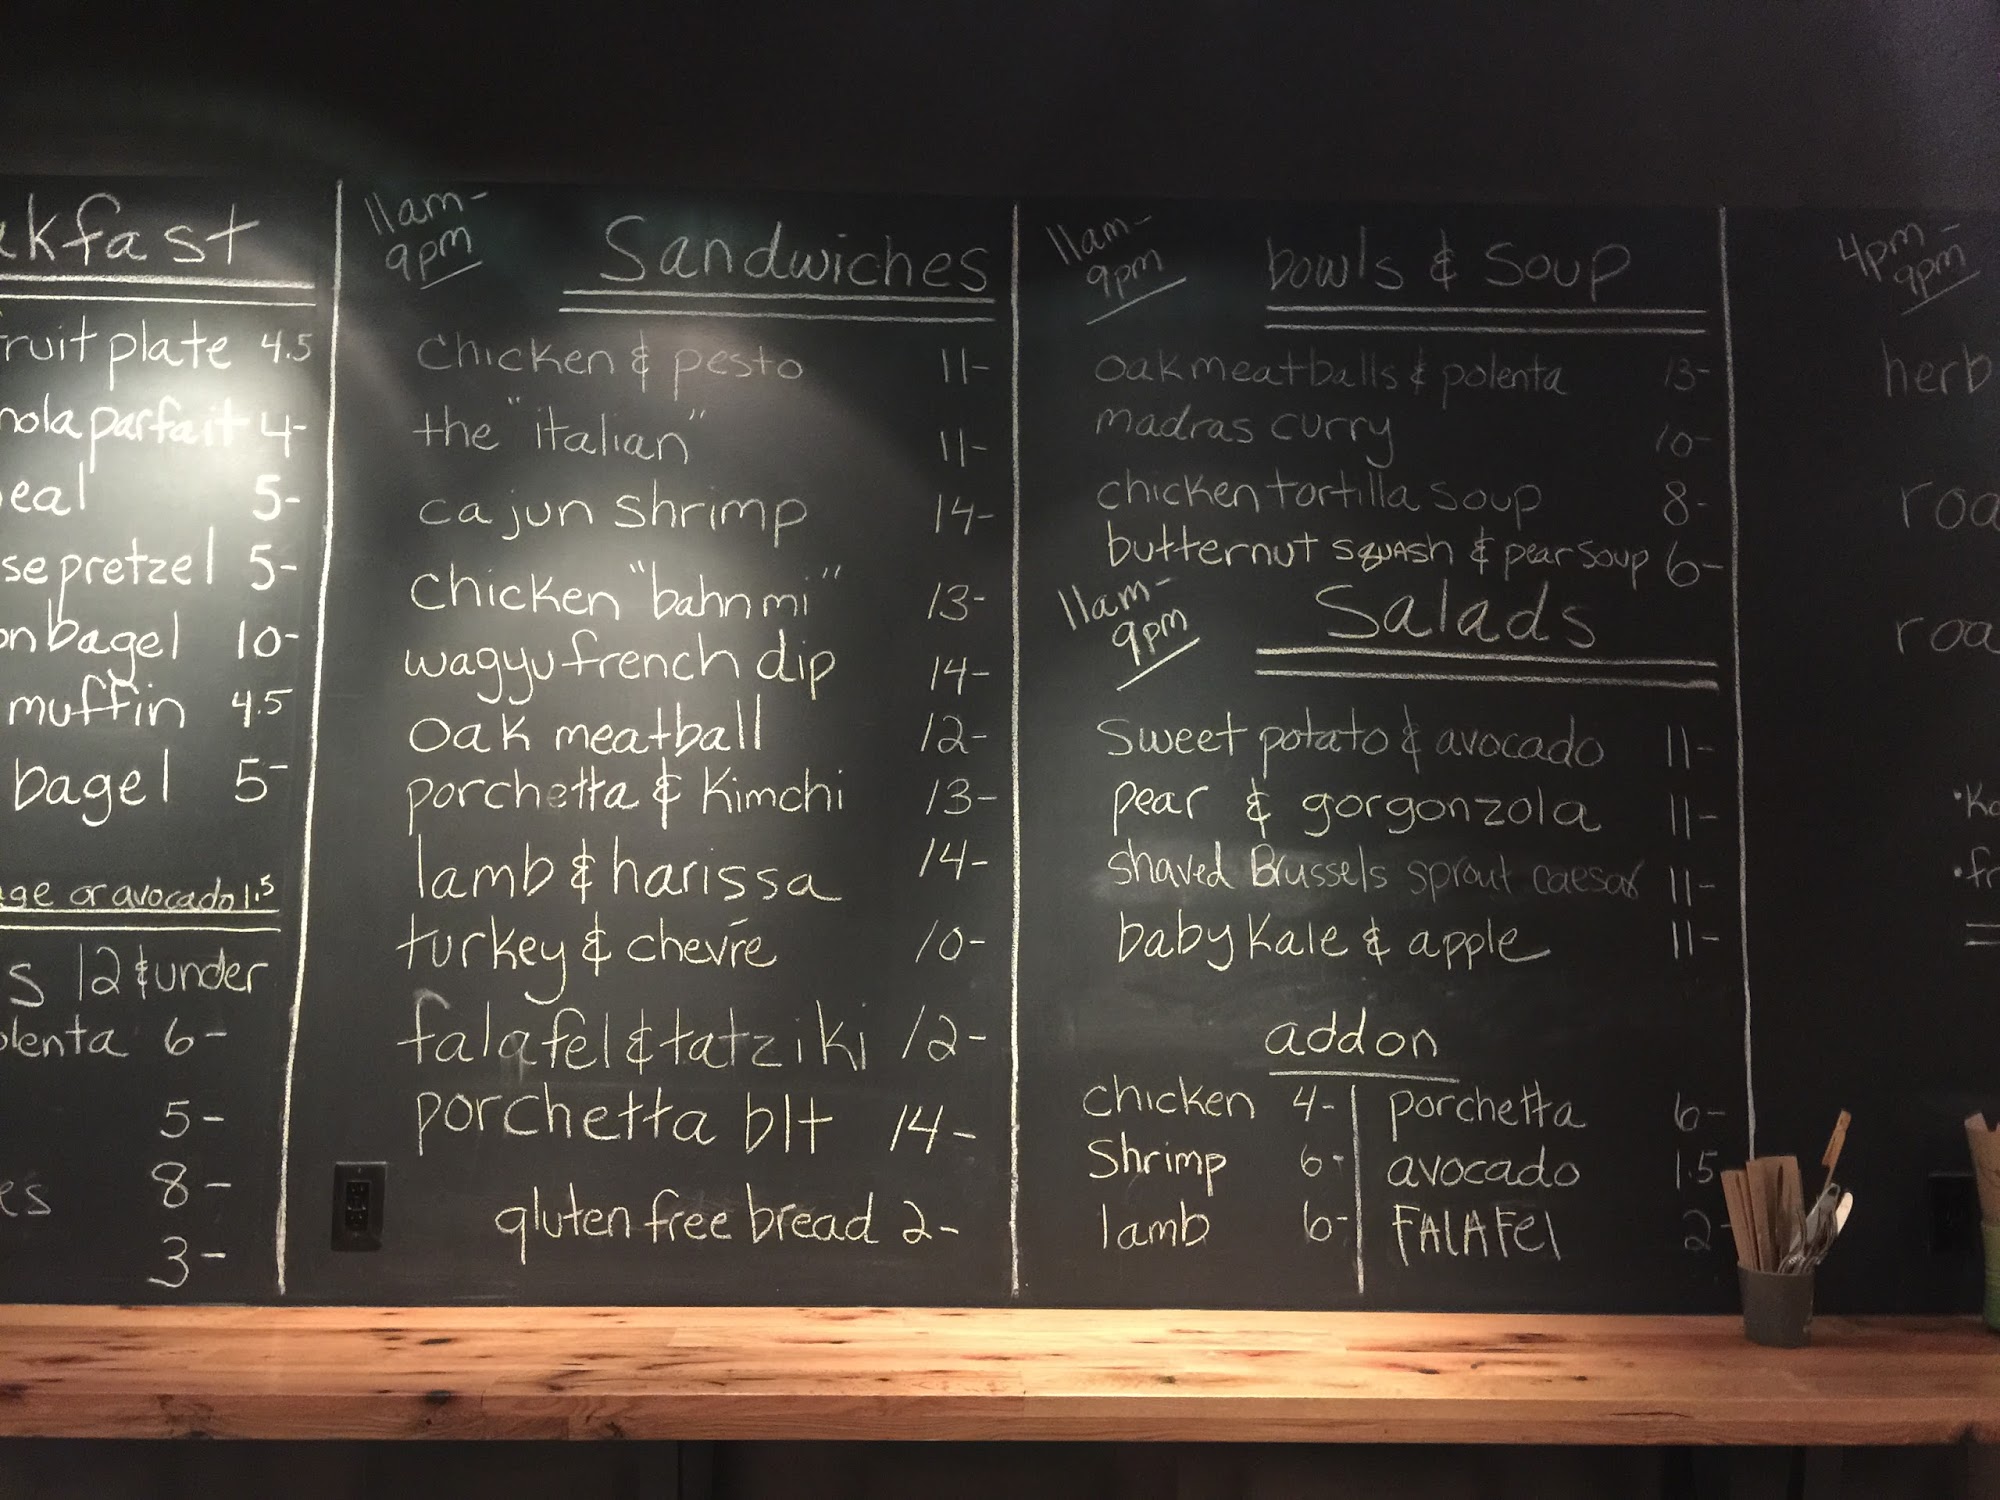 akfast
fruit plate 4.5
nola parfait 4-
eal 5-
se pretzel 5-
on bagel 10-
muffin 4.5
bagel 5-
age or avocado 1.5
s 12 & under
olenta 6-
5-
es 8-
3-
11am-
9pm
Sandwiches
chicken & pesto 11-
the "italian" 11-
cajun shrimp 14-
chicken "bahn mi" 13-
wagyu french dip 14-
oak meatball 12-
porchetta & kimchi 13-
lamb & harissa 14-
turkey & chevŕe 10-
falafel & tatziki 12-
porchetta blt 14-
gluten free bread 2-
11am-
9pm
bowls & soup
oak meatballs & polenta 13-
madras curry 10-
chicken tortilla soup 8-
butternut squash & pear soup 6-
11am-
9pm
Salads
sweet potato & avocado 11-
pear & gorgonzola 11-
shaved Brussels sprout caesar 11-
baby kale & apple 11-
add on
chicken 4- porchetta 6-
shrimp 6- avocado 1.5
lamb 6- FALAFel 2-
4pm-
9pm
herb
roa
roa
•Ka
•fr